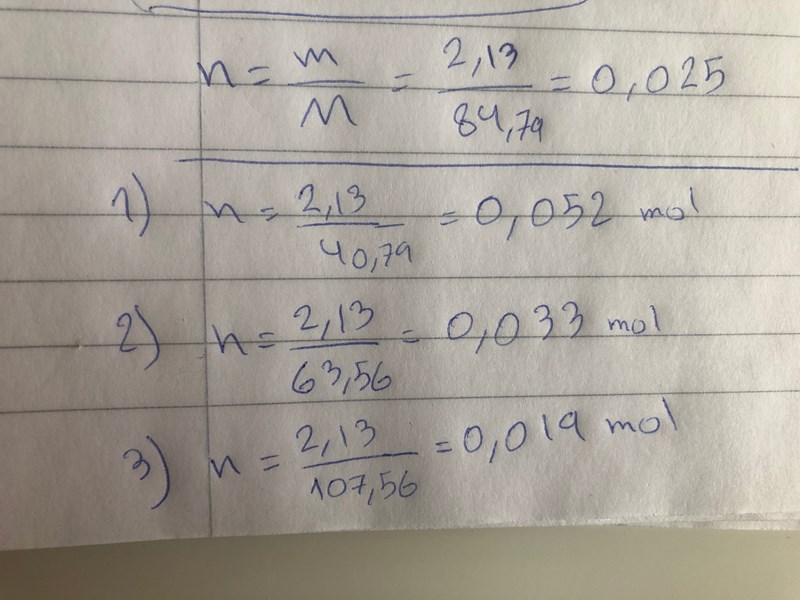 n = m/M = 2,13/84,79 = 0,025
1) n = 2,13/40,79 = 0,052 mol
2) n = 2,13/63,56 = 0,033 mol
3) n = 2,13/107,56 = 0,019 mol